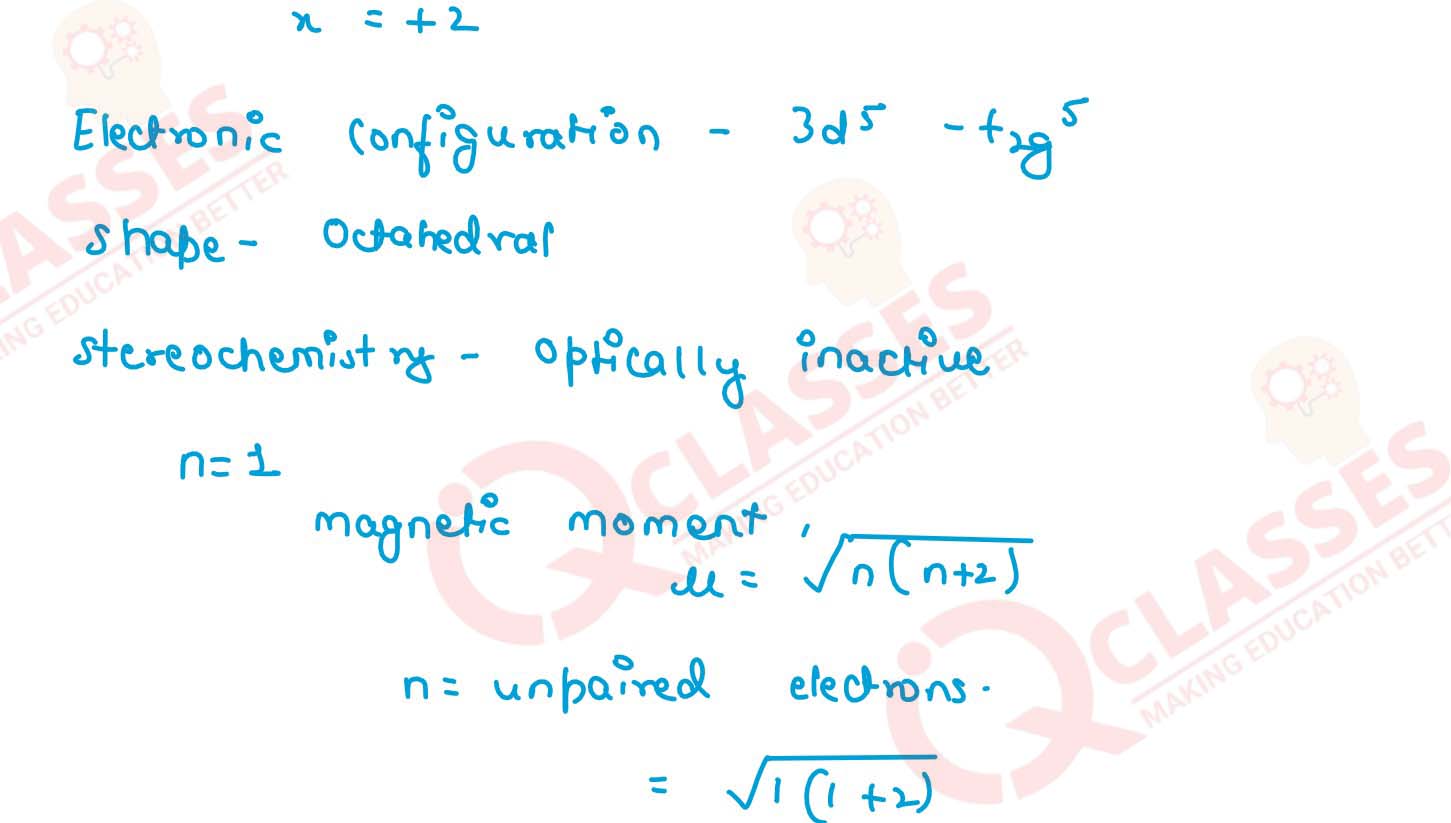 x = +2
Electronic configuration - 3d⁵ - t₂g⁵
shape - Octahedral
stereochemistry - optically inactive
n = 1
magnetic moment,
μ = √n(n+2)
n = unpaired electrons.
= √1(1+2)
CLASSES
MAKING EDUCATION BETTER
iQ CLASSES
MAKING EDUCATION BETTER
iQ CLASSES
MAKING EDUCATION BETTER